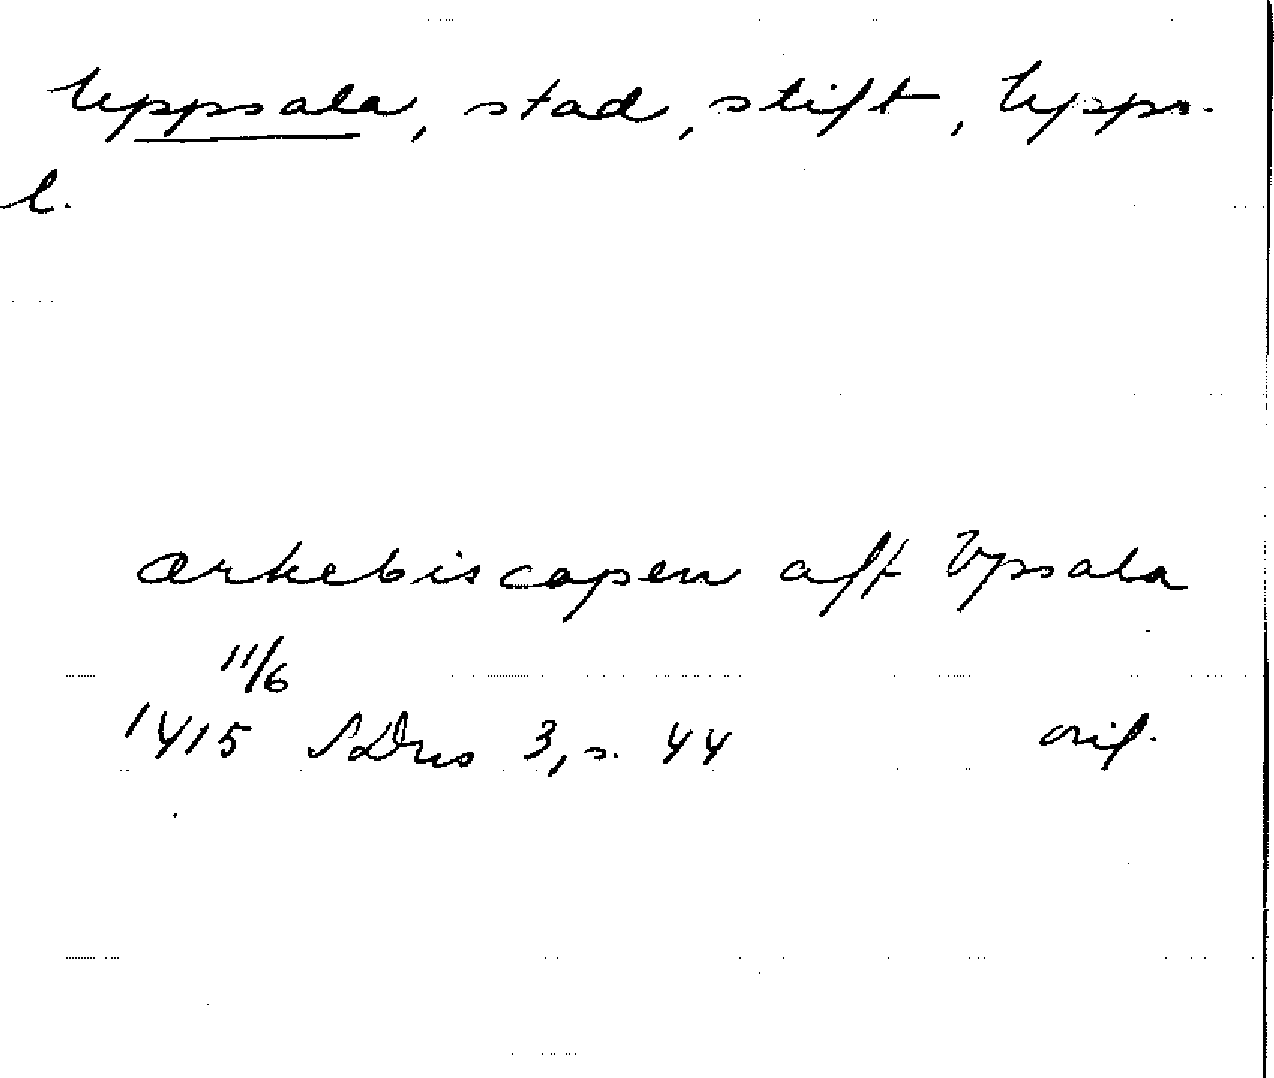 Uppsala, stad, stift, Upps.
l.
ærkebiscopen aff Vpsala
11/6
1415 SDns 3, s. 44 orig.